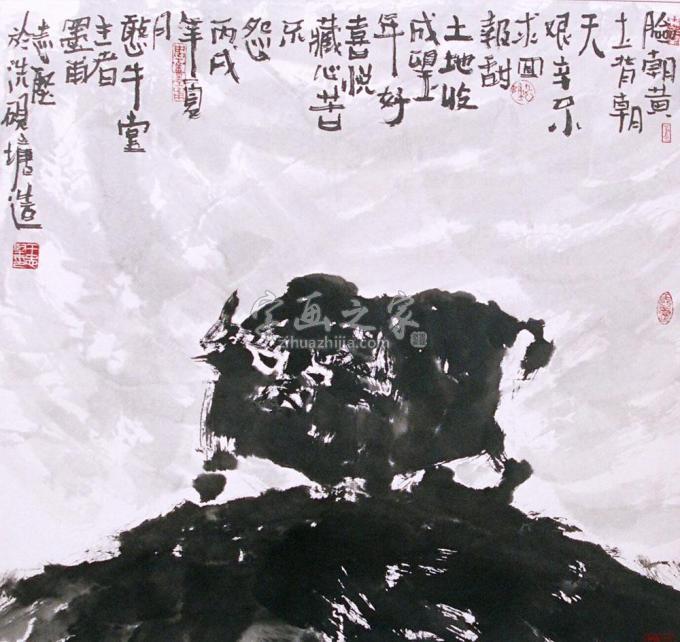 臉朝黃
土背朝
天
艰辛不
求回
報甜
土地收
成望
年好
喜悦
藏心苦
不
怨
丙戌
年夏
月
憨牛堂
主者
墨甫
志坚
於洗硯塘造
字画之家
zihuazhijia.com